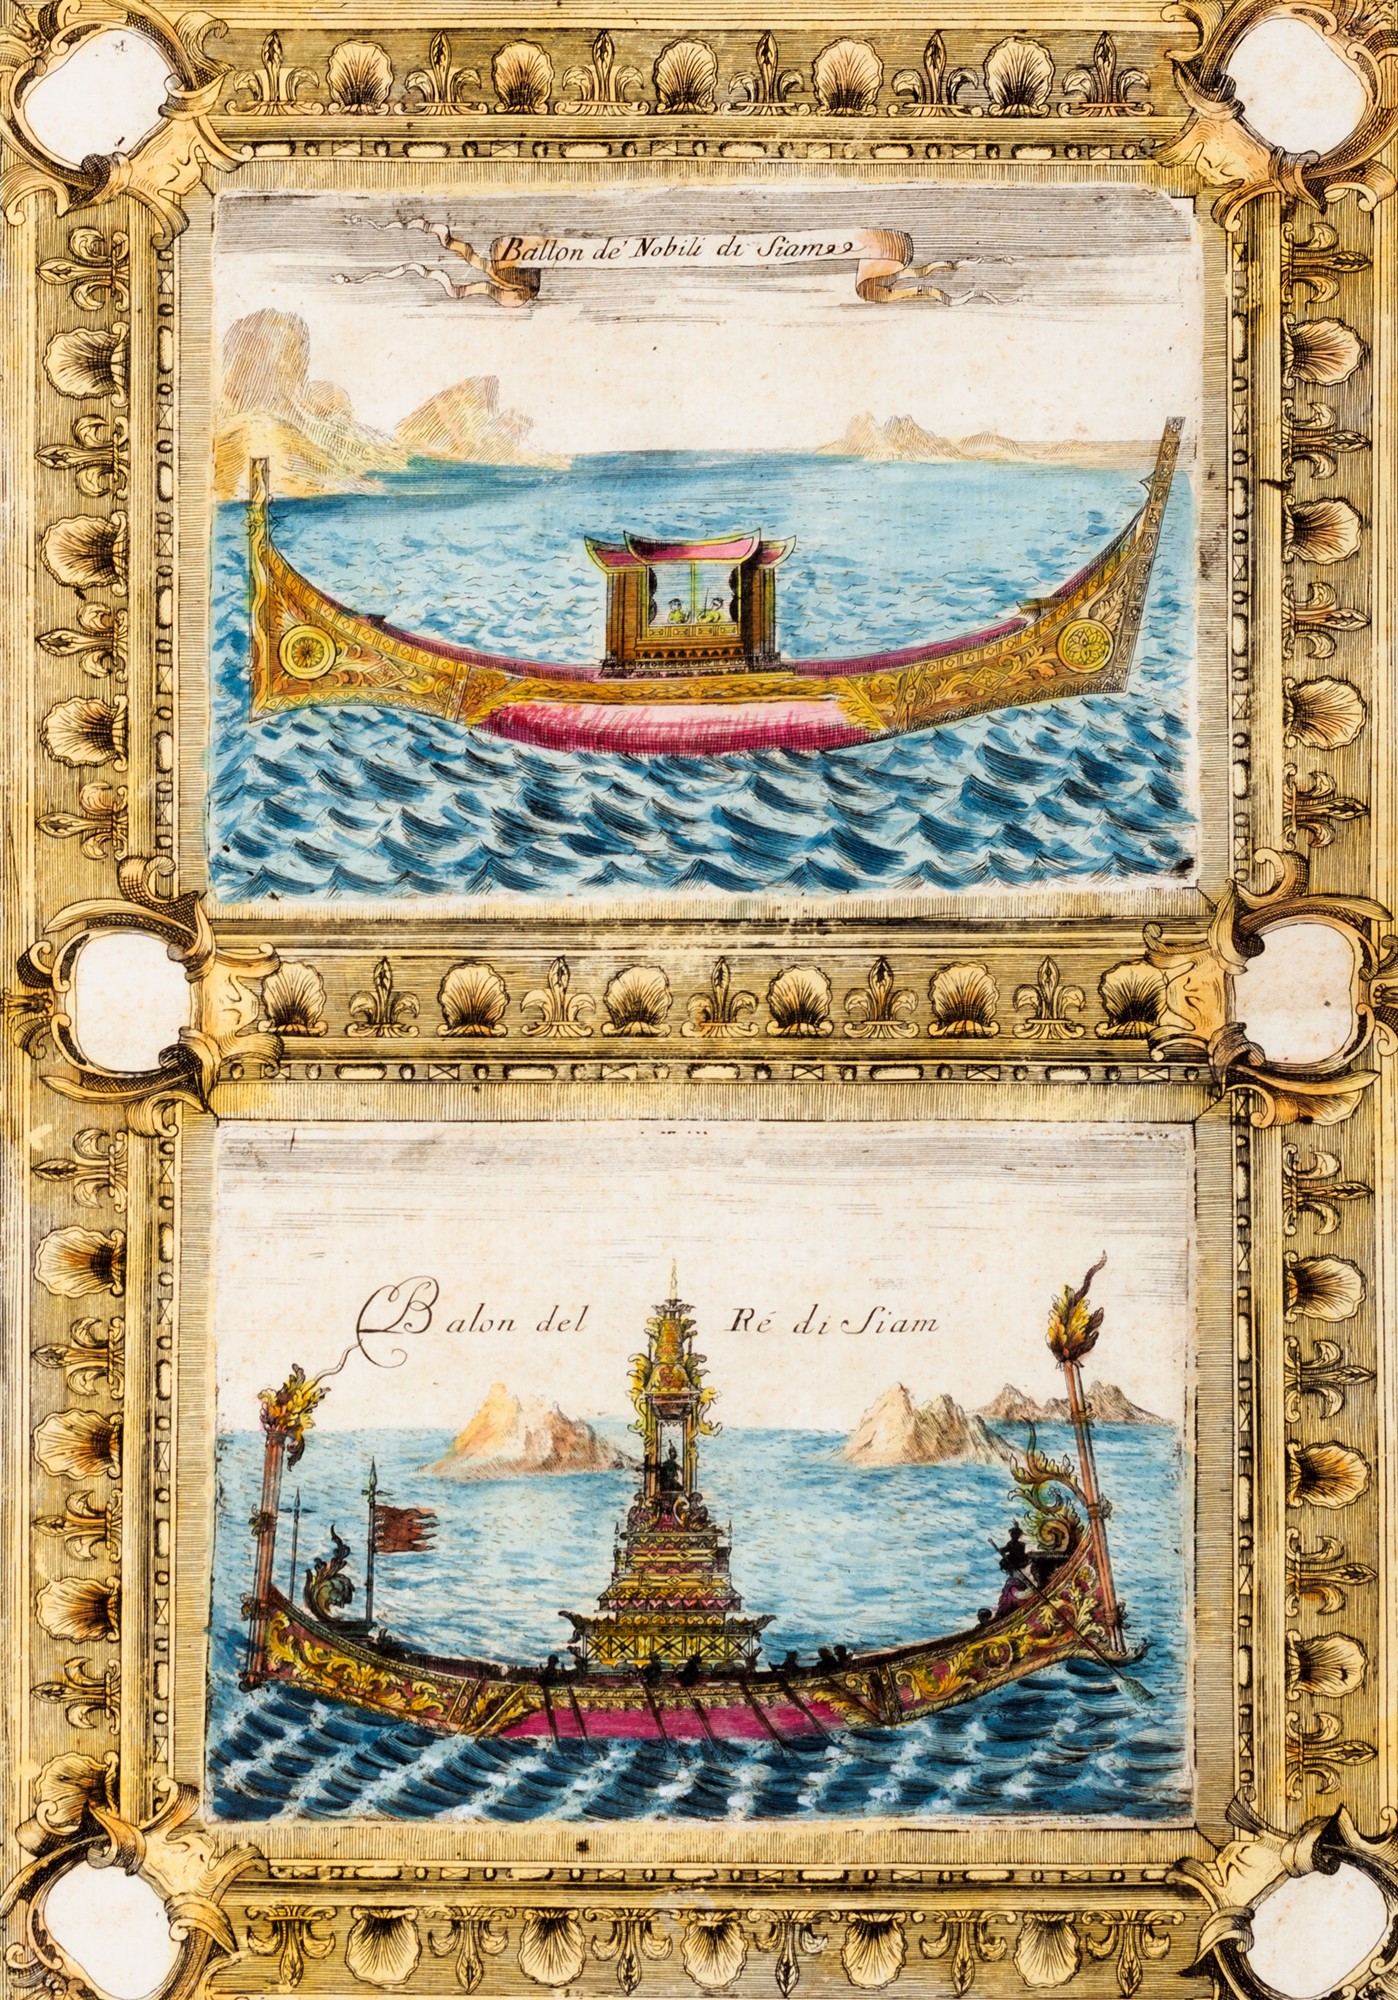 Ballon de' Nobili di Siam
Balon del Ré di Siam